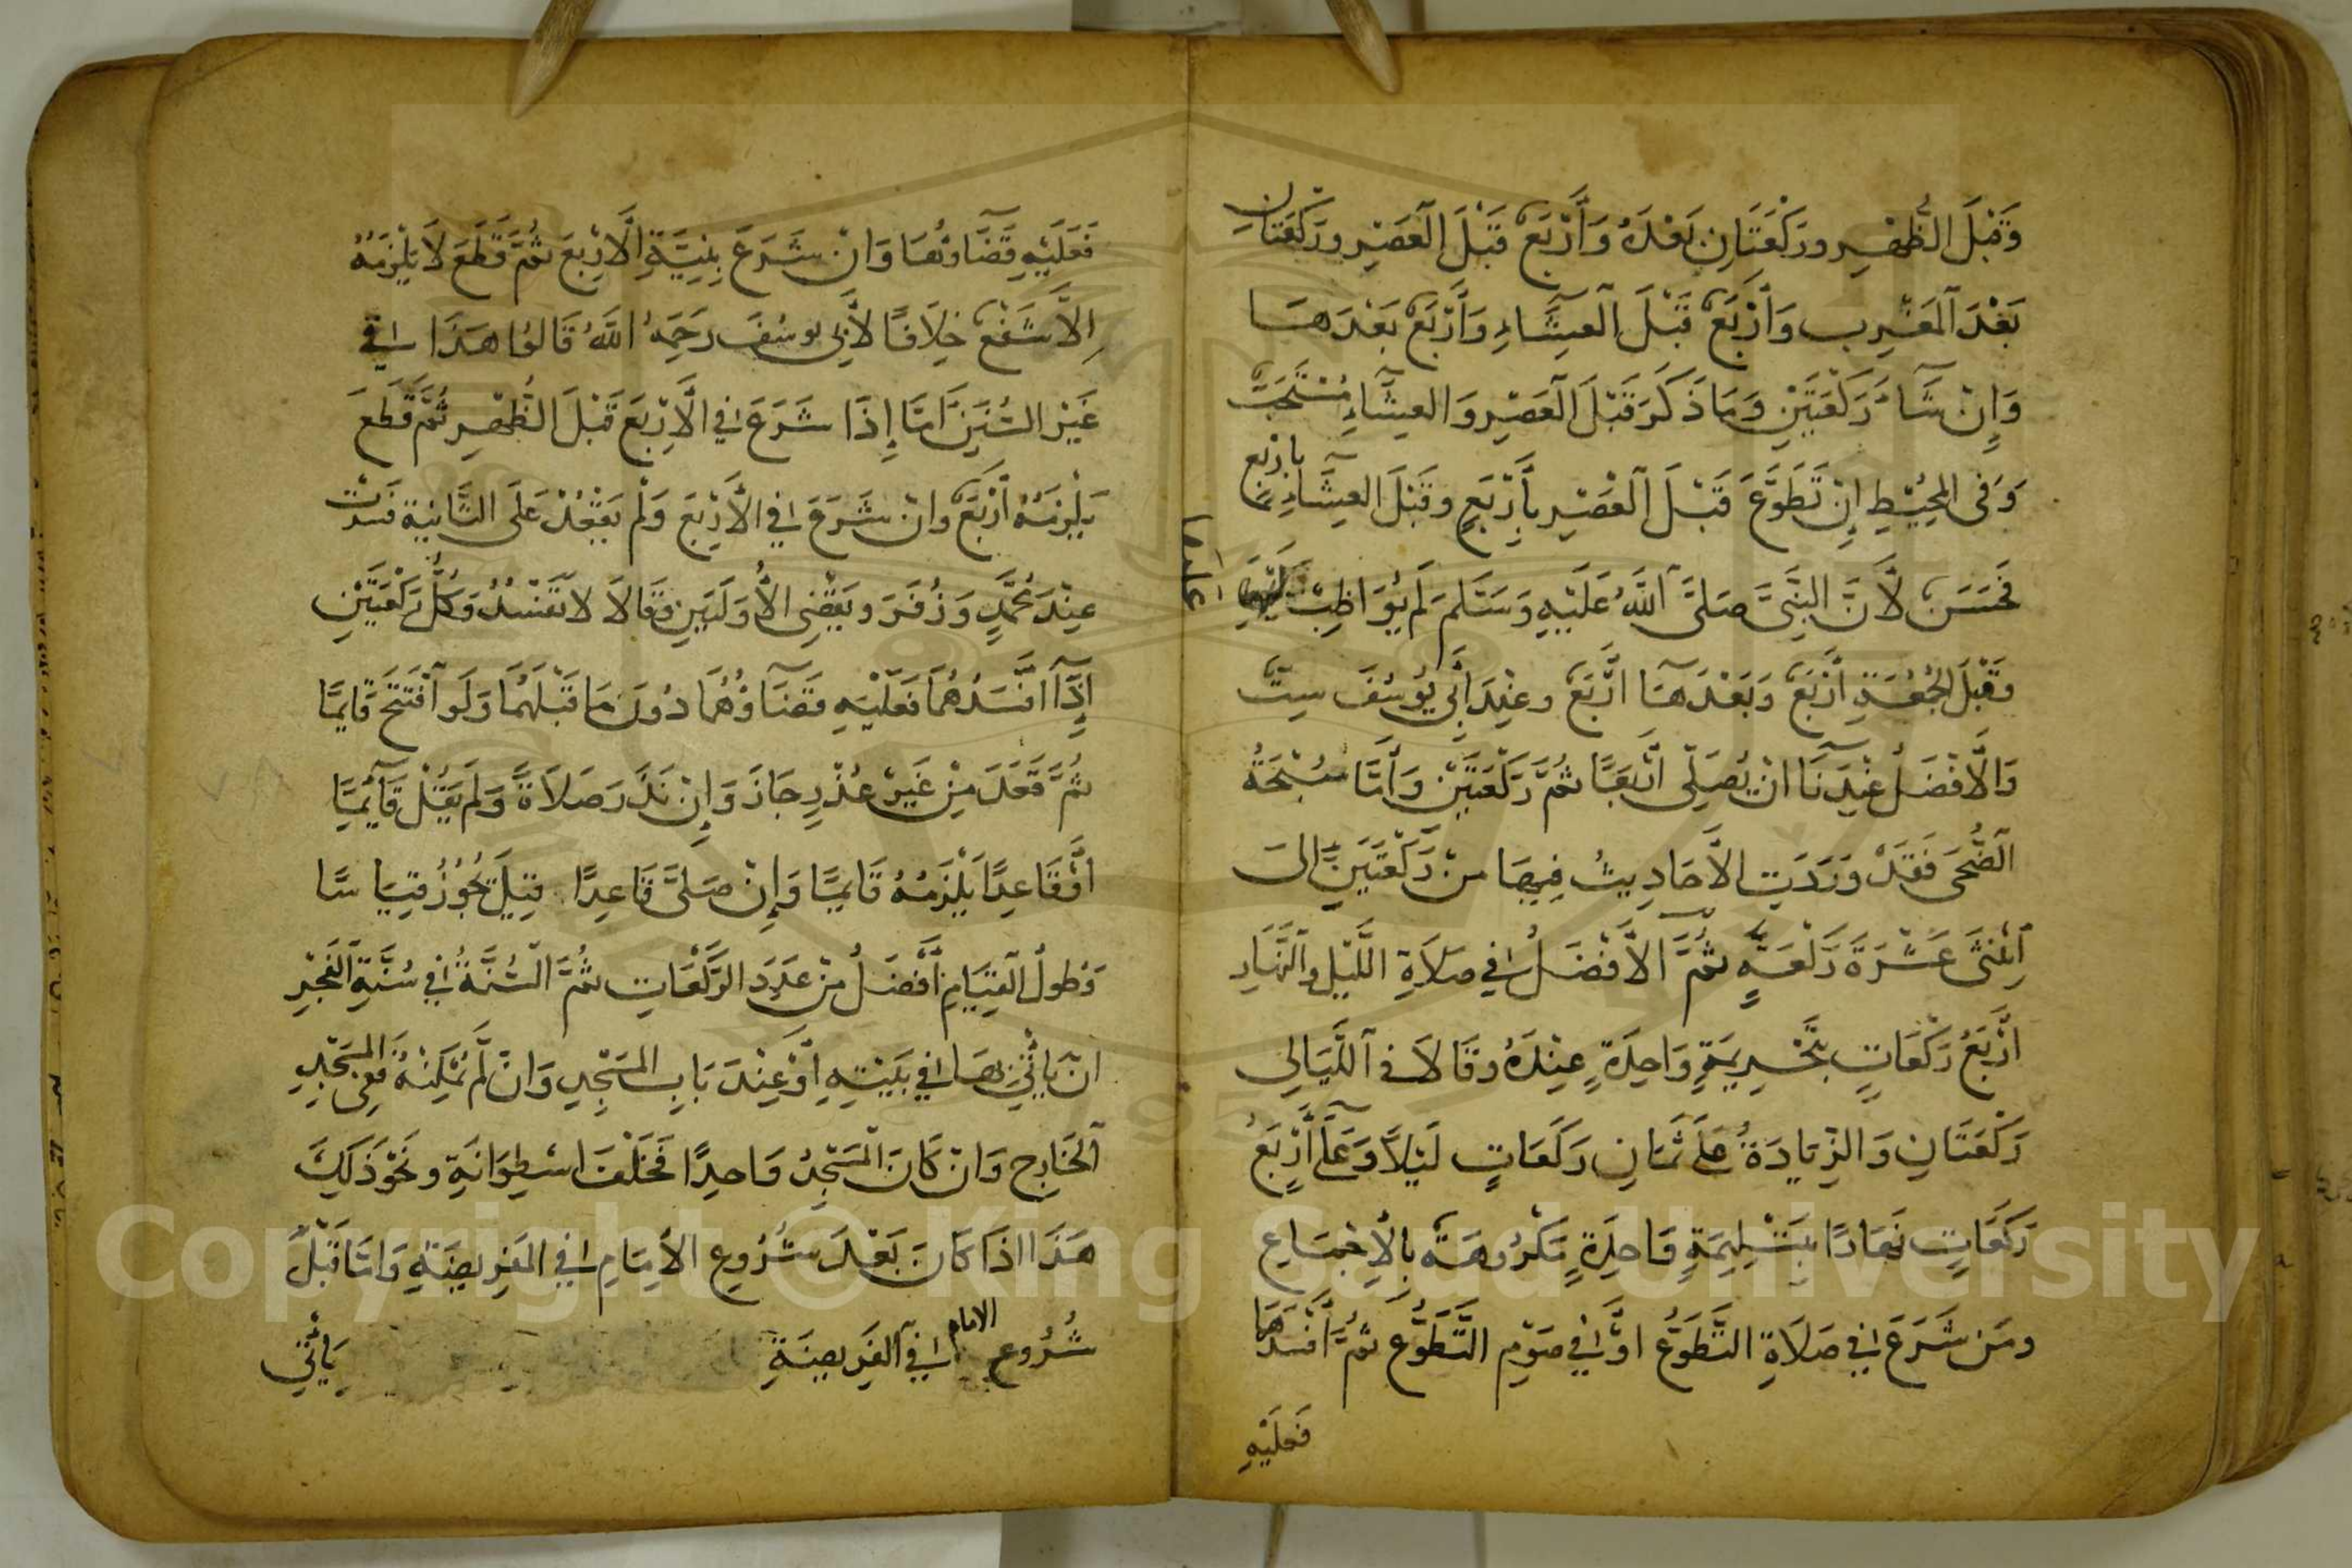 وَقَبْلَ الظُّهْرِ وَرَكْعَتَانِ بَعْدَهُ وَأَرْبَعٌ قَبْلَ الْعَصْرِ وَرَكْعَتَانِ
بَعْدَ الْمَغْرِبِ وَأَرْبَعٌ قَبْلَ الْعِشَاءِ وَأَرْبَعٌ بَعْدَهَا
وَإِنْ شَاءَ رَكْعَتَيْنِ وَمَا ذَكَرَ قَبْلَ الْعَصْرِ وَالْعِشَاءِ مُسْتَحَبٌّ
وَفِي الْمُحِيْطِ إِنْ تَطَوَّعَ قَبْلَ الْعَصْرِ بِأَرْبَعٍ وَقَبْلَ الْعِشَاءِ بِأَرْبَعٍ
فَحَسَنٌ لِأَنَّ النَّبِيَّ صَلَّى اللَّهُ عَلَيْهِ وَسَلَّمَ لَمْ يُوَاظِبْ
عليها
وَقَبْلَ الْجُمُعَةِ أَرْبَعٌ وَبَعْدَهَا أَرْبَعٌ وَعِنْدَ أَبِي يُوسُفَ سِتٌّ
وَالْأَفْضَلُ عِنْدَنَا أَنْ يُصَلِّيَ أَرْبَعًا ثُمَّ رَكْعَتَيْنِ وَأَمَّا سُبْحَةُ
الضُّحَى فَقَدْ وَرَدَتِ الْأَحَادِيثُ فِيهَا مِنْ رَكْعَتَيْنِ إِلَى
اثْنَتَى عَشْرَةَ رَكْعَةً ثُمَّ الْأَفْضَلُ فِي صَلَاةِ اللَّيْلِ وَالنَّهَارِ
أَرْبَعُ رَكْعَاتٍ بِتَحْرِيمَةٍ وَاحِدَةٍ عِنْدَهُ وَقَالَا فِي اللَّيَالِي
رَكْعَتَانِ وَالزِّيَادَةُ عَلَى ثَمَانِ رَكَعَاتٍ لَيْلًا وَعَلَى أَرْبَعِ
رَكَعَاتٍ نَهَارًا بِتَسْلِيمَةٍ وَاحِدَةٍ مَكْرُوهَةٌ بِالْإِجْمَاعِ
وَمَنْ شَرَعَ فِي صَلَاةِ التَّطَوُّعِ أَوْ فِي صَوْمِ التَّطَوُّعِ ثُمَّ أَفْسَدَهَا
فَعَلَيْهِ
فَعَلَيْهِ قَضَاؤُهَا وَإِنْ شَرَعَ بِنِيَّةِ الْأَرْبَعِ ثُمَّ قَطَعَ لَا يَلْزَمُهُ
إِلَّا شَفْعٌ خِلَافًا لِأَبِي يُوسُفَ رَحِمَهُ اللَّهُ قَالُوا هَذَا فِي
غَيْرِ السُّنَنِ أَمَّا إِذَا شَرَعَ فِي الْأَرْبَعِ قَبْلَ الظُّهْرِ ثُمَّ قَطَعَ
يَلْزَمُهُ أَرْبَعٌ وَإِنْ شَرَعَ فِي الْأَرْبَعِ وَلَمْ يَقْعُدْ عَلَى الثَّانِيَةِ فَسَدَتْ
عِنْدَ مُحَمَّدٍ وَزُفَرَ وَيَقْضِي الْأُولَيَيْنِ وَقَالَا لَا تَفْسُدُ وَكُلُّ رَكْعَتَيْنِ
إِذَا أَفْسَدَهُمَا فَعَلَيْهِ قَضَاؤُهُمَا دُونَ مَا قَبْلَهُمَا وَلَوِ افْتَتَحَ قَائِمًا
ثُمَّ قَعَدَ مِنْ غَيْرِ عُذْرٍ جَازَ وَإِنْ نَذَرَ صَلَاةً وَلَمْ يَقُلْ قَائِمًا
أَوْ قَاعِدًا يَلْزَمُهُ قَائِمًا وَإِنْ صَلَّى قَاعِدًا قِيلَ يَجُوزُ قِيَاسًا
وَطُولُ الْقِيَامِ أَفْضَلُ مِنْ عَدَدِ الرَّكْعَاتِ ثُمَّ السُّنَّةُ فِي سُنَّةِ الْفَجْرِ
أَنْ يَأْتِيَ بِهَا فِي بَيْتِهِ أَوْ عِنْدَ بَابِ الْمَسْجِدِ وَإِنْ لَمْ يُمْكِنْهُ فَفِي الْمَسْجِدِ
الْخَارِجِ وَإِنْ كَانَ الْمَسْجِدُ وَاحِدًا فَخَلْفَ اسْطِوَانَةٍ وَنَحْوَ ذَلِكَ
هَذَا إِذَا كَانَ بَعْدَ شُرُوعِ الْإِمَامِ فِي الْفَرِيضَةِ وَأَمَّا قَبْلَ
شُرُوعِ الامام فِي الْفَرِيضَةِ يَأْتِي
Copyright © King Saud University